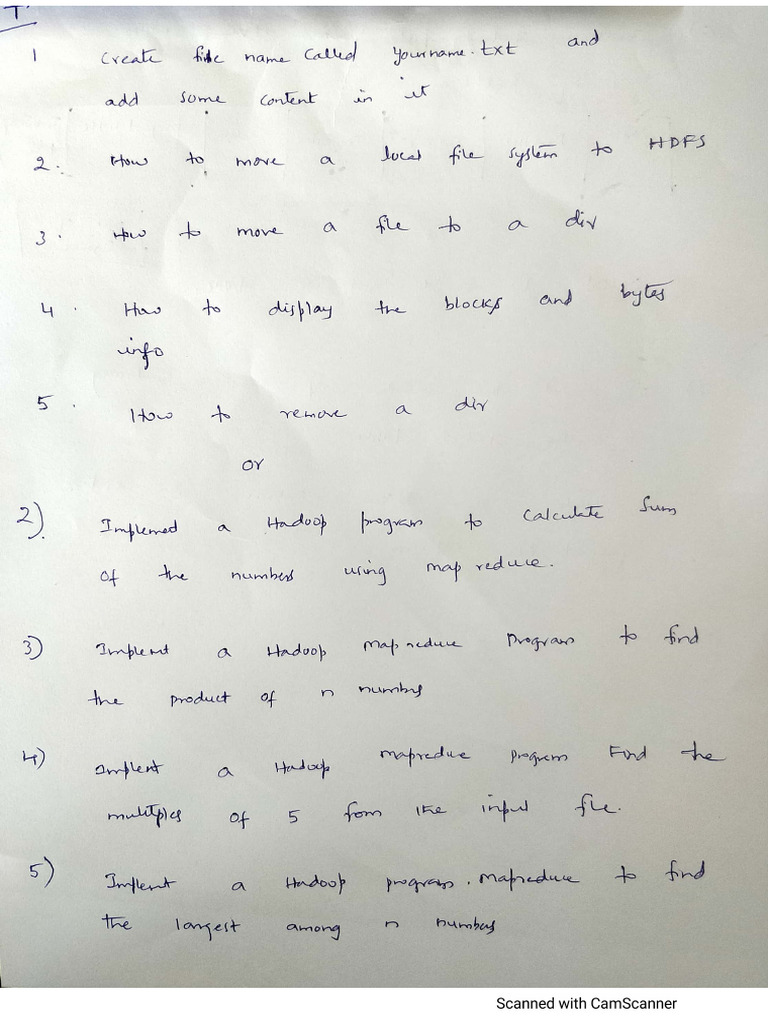 1 Create file name Called yourname.txt and
add some content in it
2. How to move a local file system to HDFS
3. How to move a file to a dir
4. How to display the blocks and bytes
info
5. How to remove a dir
or
2) Implemed a Hadoop program to calculate Sum
of the numbers using map reduce.
3) Implemnt a Hadoop Map reduce Program to find
the product of n numbers
4) Implent a Hadoop mapreduce program Find the
multiples of 5 from the input file.
5) Implemnt a Hadoop program. Mapreduce to find
the largest among n numbers
Scanned with CamScanner